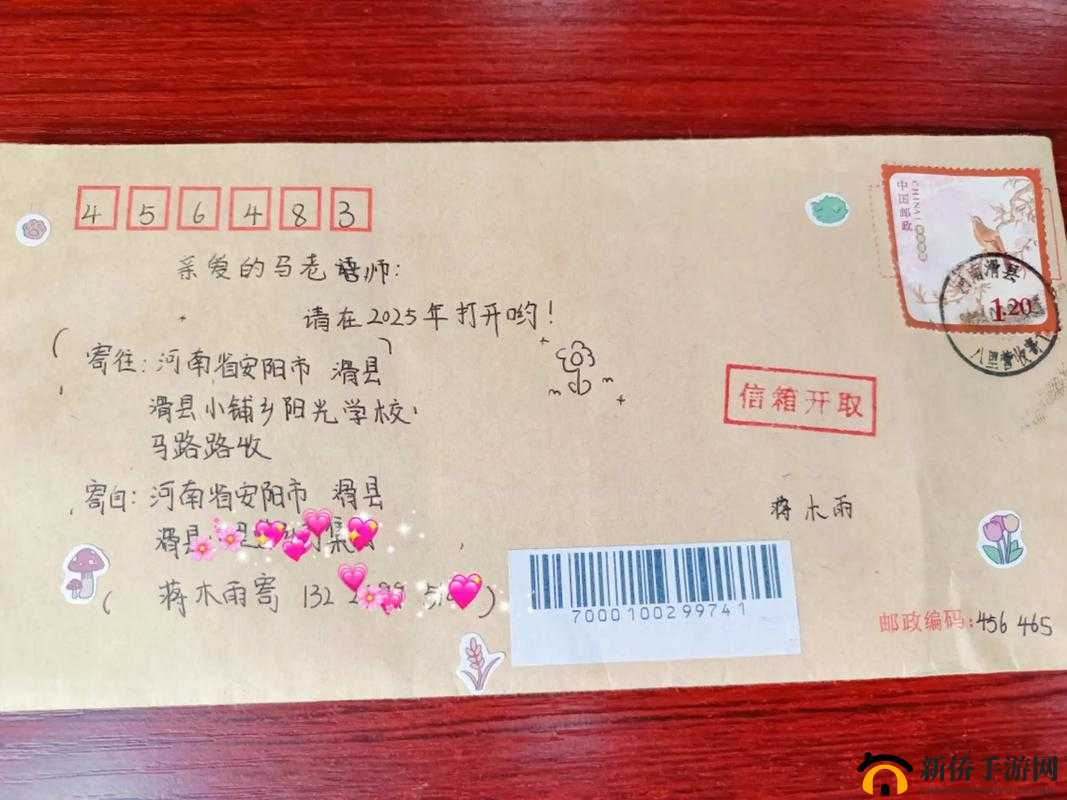 456483
亲爱的马老师:
请在2025年打开哟!
(寄往:河南省安阳市 滑县)
滑县小铺乡阳光学校
马路路收
寄自:河南省安阳市 滑县
滑县
(蒋木雨寄 132)
中国邮政
CHINA
1.20
河南滑县
信箱开取
蒋木雨
7000100299741
邮政编码:456465
新侨手游网